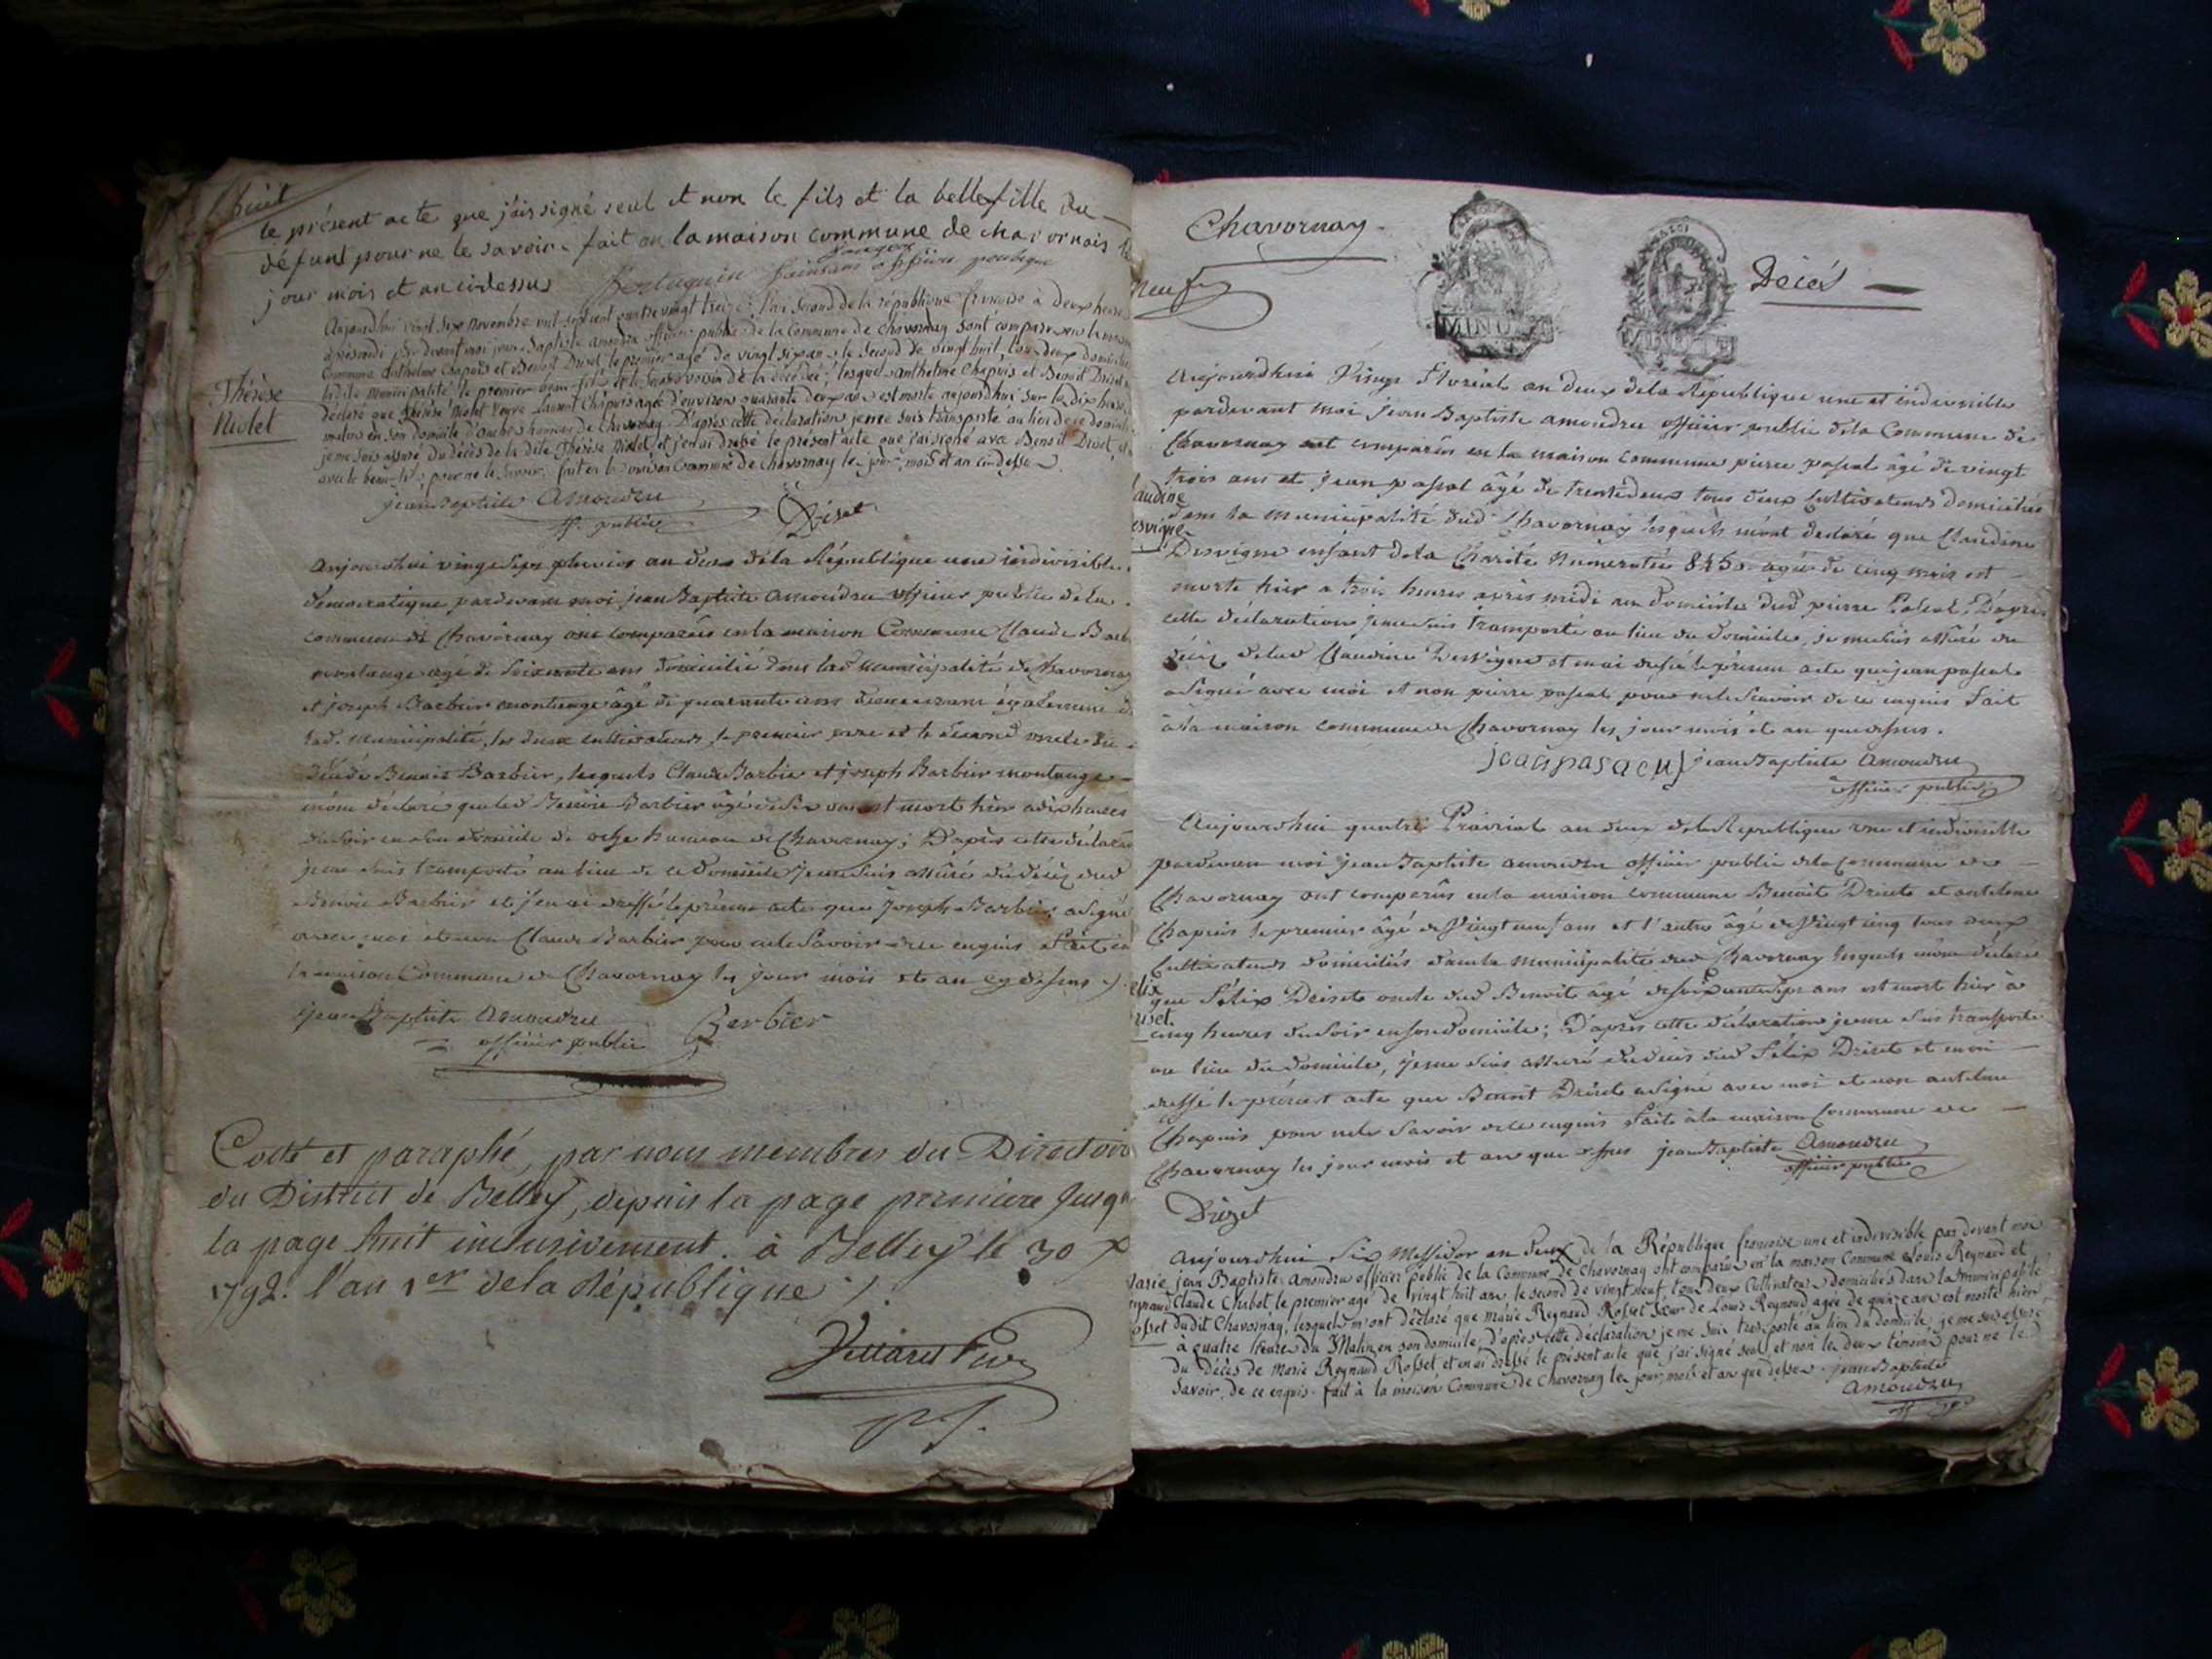 huit
le présent acte que j'ais signé seul et non le fils et la bellefille du
défunt pour ne le savoir. fait en la maison commune de chavornais
jour mois et an cidessus
Aujourdhui vingt six novembre mil sept cent quatre vingt treize l'an second de la république françoise à deux heures
après midi par devant moi jean Baptiste amoudru officier public de la Commune de Chavornay sont comparu en la maison
Commune anthelme Chapuis et Benoit Driset le premier agé de vingt six ans le second de vingt huit, tous deux
ladite municipalité le premier beau fils et le second voisin de la décédée, lesquels anthelme Chapuis et Benoit Driset
Thérèse
Niolet
déclaré que Thérèse Niolet veuve Laurent Chapuis agée d'environ quarante deux ans est morte aujourdhui sur les dix heures
matin en son domicile d'ouche hameau de Chavornay. D'après cette déclaration je me suis transporté au lieu de ce domicile
je me suis assuré du décès de la dite Thérèse Niolet et j'en ai dressé le présent acte que j'ai signé avec Benoit Driset
avec le beau-fils pour ne le savoir. fait en la maison Commune de Chavornay les jour, mois et an cidessus
jean Baptiste Amoudru
off. public
Driset
Aujourdhui vingt sept pluvios an deux de la République une indivisible
démocratique pardevant moi jean Baptiste Amoudru officier public de la
commune de Chavornay ont comparûs en la maison Commune Claude Barbier
montange agé de soixante ans domicilié dans lad. municipalité de Chavornay
et joseph Barbier montange âgé de quarante ans demeurant également
lad. municipalité, les deux cultivateurs, le premier pere et le second oncle du
décédé Benoit Barbier, lesquels Claude Barbier et joseph Barbier montange
mont déclaré que led Benoit Barbier âgé de est mort hier a dix heures
du soir en son domicile de oche hameau de Chavornay; D'après cette déclaration
je me suis transporté au lieu de ce domicile je me suis assûré du décéz dud
Benoit Barbier et j'en ai dressé le présent acte que joseph Barbier a signé
avec moi et non Claude Barbier pour ne le savoir de ce enquis Fait en
la maison Commune de Chavornay les jour mois et an cy dessus
jean Baptiste Amoudru
officier public
Berbier
Cotté et paraphé, par nous membres du Directoire
du District de Belley, depuis la page premiere jusqu'
la page huit inclusivement. à Belley le 30
1792. l'an 1er de la République
Chavornay
neuf
MINUTE
MINUTE
Décés
Aujourdhui Vingt Floréal an deux de la République une et indivisible
pardevant moi jean Baptiste amoudru officier public de la Commune de
Chavornay ont comparûs en la maison commune pierre pascal âgé de vingt
trois ans et jean pascal âgé de trentedeux tous deux cultivateurs domiciliés
audine
esvigne
dans la municipalité dud Chavornay lesquels m'ont declaré que Claudine
Desvigne enfant de la Charité Numerotée 8450. agée de cinq mois est
morte hier a trois heures après midi au domicile dud pierre Pascal. D'après
cette déclaration je me suis transporté au lieu du domicile, je me suis assûré du
décéz de lad Claudine Desvigne et en ai dressé le présent acte que jean pascal
a signé avec moi et non pierre pascal pour ne le savoir de ce enquis Fait
à la maison commune de Chavornay les jour mois et an que dessus.
jean pascal jean Baptiste Amoudru
officier public
Aujourdhui quatre Prairial an deux de la Republique une et indivisible
pardevant moi jean Baptiste amoudru officier public de la Commune de
Chavornay ont comparûs en la maison commune Benoit Driset et antelme
Chapuis le premier âgé de Vingt neuf ans et l'autre âgé de Vingt cinq tous deux
Cultivateurs domiciliés dans la municipalité dud Chavornay lesquels mont déclaré
elix
riset.
que Félix Driset oncle dud Benoit âgé de soixante sept ans est mort hier à
cinq heures du soir en son domicile; D'après cette déclaration je me suis transporté
au lieu du domicile, je me suis assuré du décès dud Félix Driset et en ai
dressé le présent acte que Benoit Driset a signé avec moi et non antelme
Chapuis pour ne le savoir de ce enquis Fait à la maison Commune de
Chavornay les jour mois et an que dessus jean Baptiste Amoudru
officier public
Drizet
Aujourdhui Six Messidor an deux de la République françoise une et indivisible par devant moi
Marie
eynaud
osset
jean Baptiste Amoudru officier public de la Commune de Chavornay ont comparû en la maison Commune Louis Reynaud et
Claude Chibot, le premier agé de vingt huit ans, le second de vingt neuf, tous deux Cultivateurs domiciliés dans la municipalité
dudit Chavornay, lesquels m'ont déclaré que marie Reynaud Rosset Sœur de Louis Reynaud agée de quinze ans est morte hier
à quatre heures du Matin en son domicile, d'après cette déclaration je me suis transporté au lieu du domicile, je me suis assuré
du Décès de Marie Reynaud Rosset et en ai dressé le présent acte que j'ai signé seul et non les deux témoins pour ne le
Savoir de ce enquis. fait à la maison Commune de Chavornay les jour, mois et an que dessus. jean Baptiste
Amoudru